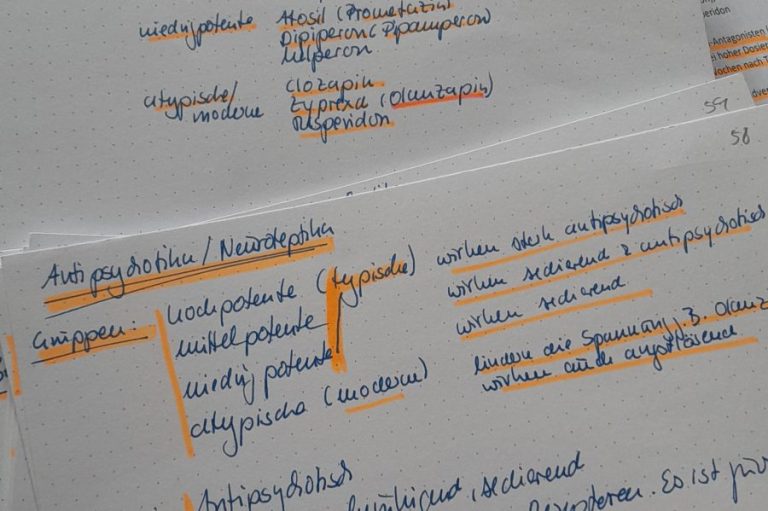 niedrigpotente Atosil (Prometazin)
Dipiperon (Pipamperon)
Melperon
atypische/ Clozapin
moderne Zyprexa (Olanzapin)
Risperidon
eridon
-Antagonisten
hoher Dosier
Wochen nach T
59
58
Antipsychotika / Neuroleptika
Gruppen: hochpotente (typische) wirken stark antipsychotisch
mittelpotente wirken sedierend & antipsychotisch
niedrigpotente wirken sedierend
atypische (moderne) lindern die Spannung, z.B. Olanz
wirken auch angstlösend
Antipsychotisch
sedierend
Rezeptoren. Es ist für